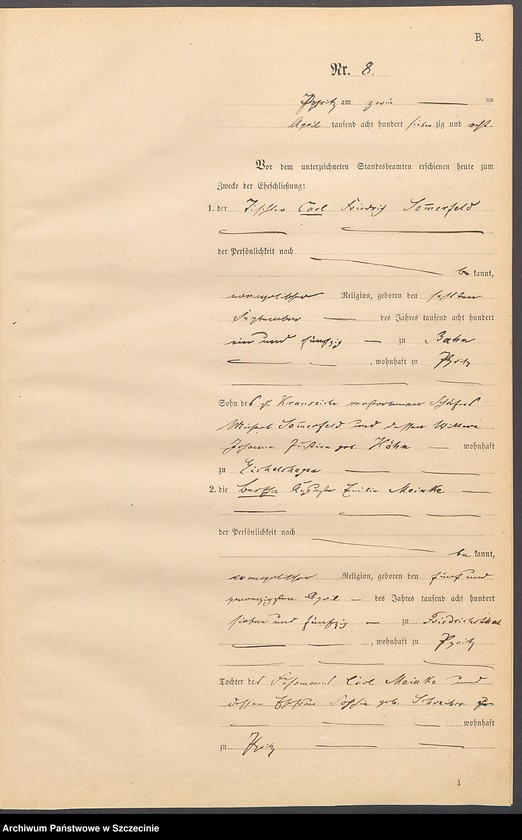 B.
Nr. 8.
Pyritz am zwei ten
April tausend acht hundert sieben zig und acht.
Vor dem unterzeichneten Standesbeamten erschienen heute zum
Zwecke der Eheschließung:
1. der Tischler Carl Friedrich Somerfeld
der Persönlichkeit nach
be kannt,
evangelischer Religion, geboren den sechsten
September des Jahres tausend acht hundert
ein und fünfzig zu Bahn
, wohnhaft zu Pyritz
Sohn des zu verstorbenen Schäfers
Michael Somerfeld und dessen Wittwe
Johanna Justine geb. Höhn wohnhaft
zu Eichelshagen
2. die Bertha Auguste Emilie Meinke
der Persönlichkeit nach
be kannt,
evangelischer Religion, geboren den fünf und
zwanzigsten April des Jahres tausend acht hundert
sieben und fünfzig zu Friedrichsthal
, wohnhaft zu Pyritz
Tochter des Carl Meinke und
dessen Ehefrau Sophie geb. Schreiber
wohnhaft
zu Pyritz
4
Archiwum Państwowe w Szczecinie